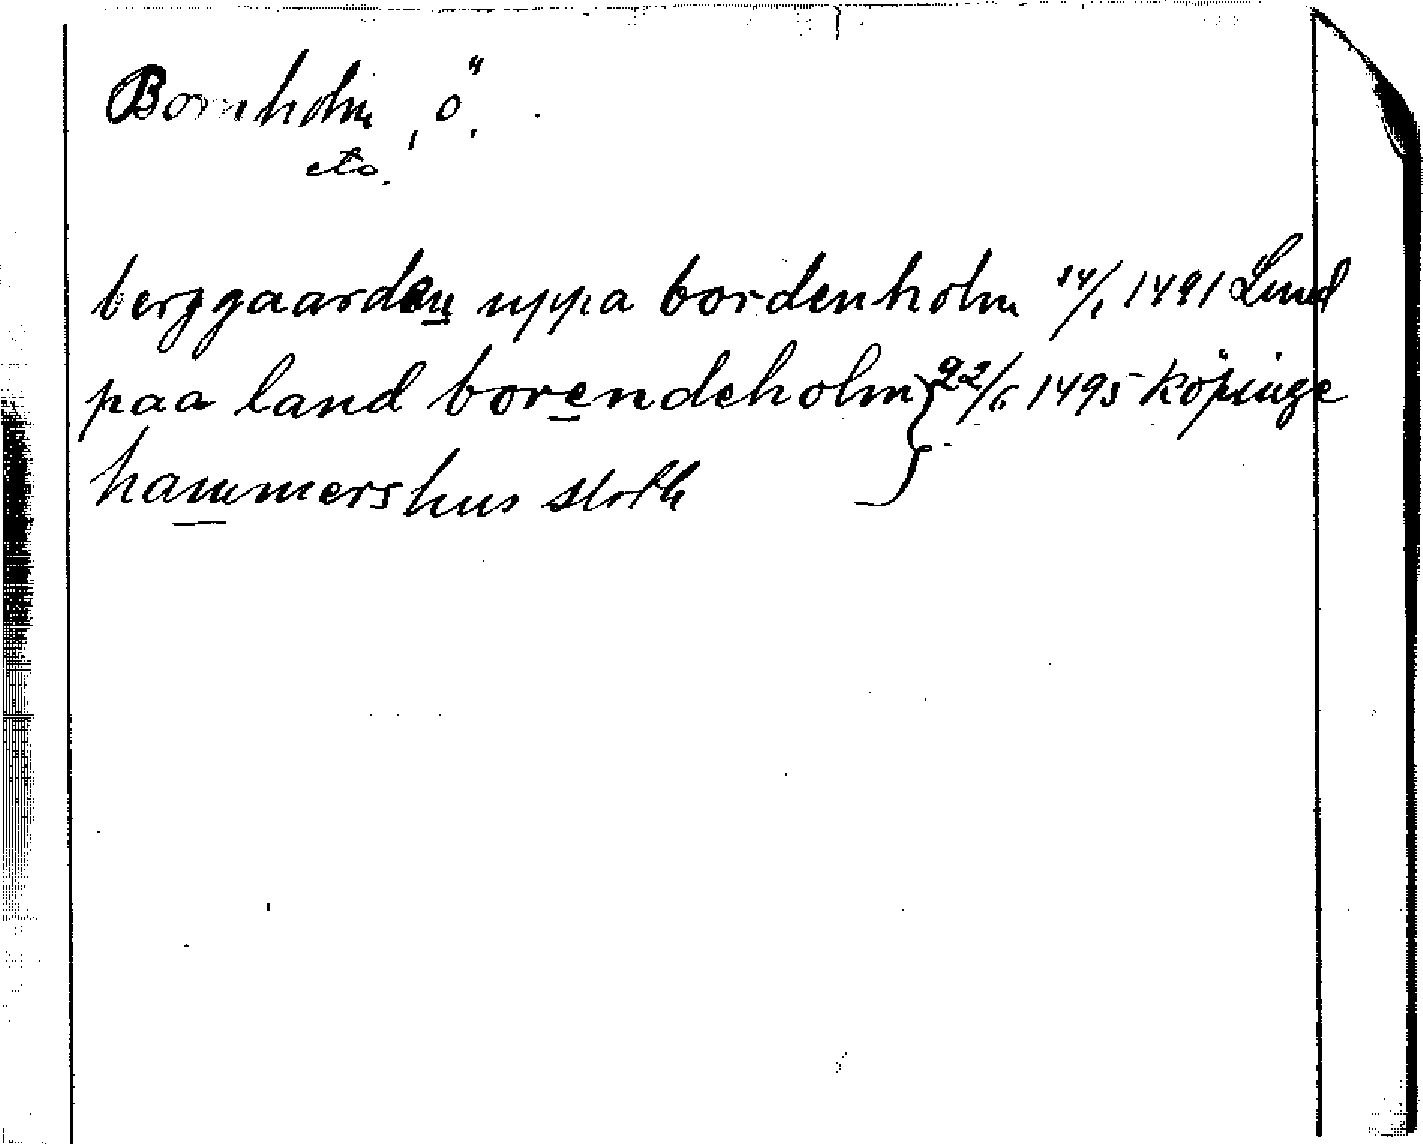 Bornholm, ö.
etc.
berggaarden uppa bordenholm 14/1 1491 Lund
paa land borendeholm } 22/6 1495 Köpinge
hammershus sloth